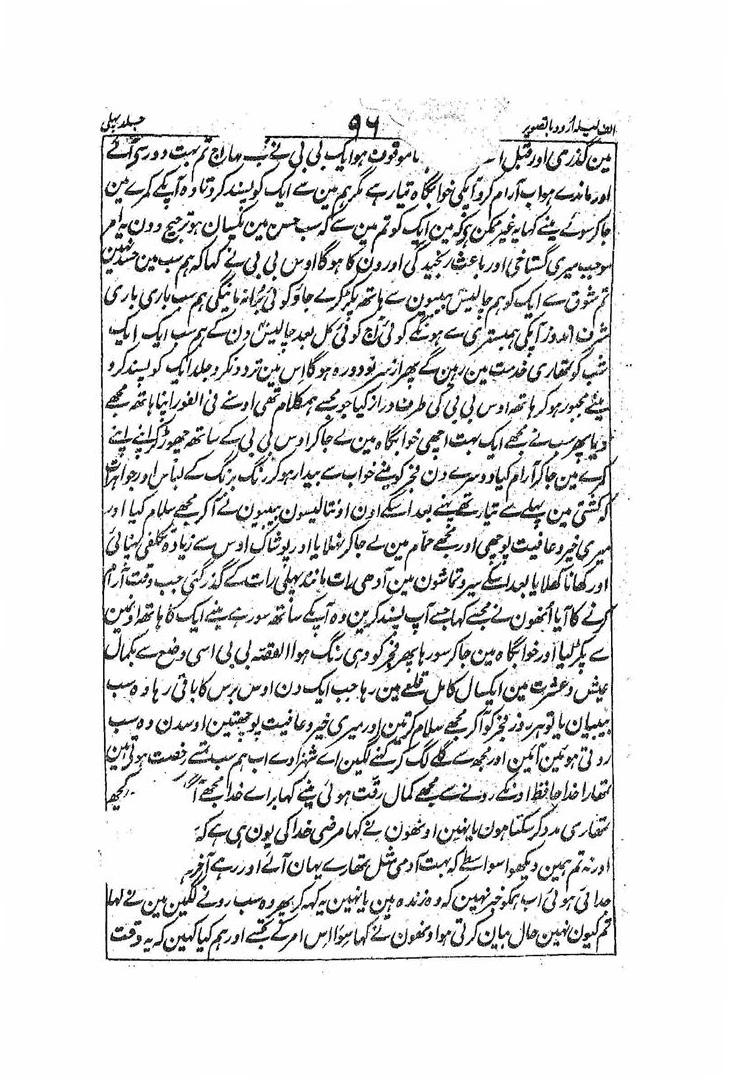 الف لیلہ اردو با تصویر ۹۶ جلد پہلی
مین گذری اور قبل ا موقوف ہوا ایک بی بی نے تم بہت دور سی آئے
اور ماندے ہو اب آرام کرو آپکی خوابگاہ تیار ہے مگر ہم مین سے ایک کو پسند کرو تا وہ آپکے کمرے مین
جا کر سوئے مینے کہا یہ غیر ممکن ہی کہ مین ایک کو تم مین سے کہ سب حسن مین یکسان ہو ترجیح دون یہ امر
موجب میری گستاخی اور باعث رنجیدگی اورون کا ہوگا اوس بی بی نے کہا کہ ہم سب مین حسد نہین
تم شوق سے ایک کو ہم چالیس بیبیون سے ہاتھ پکڑ کر لے جاؤ کوئی برا نہ مانیگی ہم سب باری باری
شرف اندوز آپکی ہمبستری سے ہونگے کوئی آج کوئی کل بعد چالیس دن کے ہم سب ایک ایک
شب کو تمھاری خدمت مین رہین گے پھر از سر نو دورہ ہوگا اس مین تردد نکرو جلد ایک کو پسند کرو
مینے مجبور ہو کر ہاتھ اوس بی بی کی طرف دراز کیا جو مجھسے ہمکلام تھی اوسنے فی الفور اپنا ہاتھ مجھے
دیا پھر سب نے مجھے ایک بہت اچھی خوابگاہ مین لے جا کر اوس بی بی کے ساتھ چھوڑ کر اپنے اپنے
کمرے مین جا کر آرام کیا دوسرے دن فجر کو مینے خواب سے بیدار ہو کر رنگ برنگ کے لباس اور جواہرات
کہ کشتی مین پہلے سے تیار تھے پہنے بعد اسکے اون اونتالیسون بیبیون نے آ کر مجھے سلام کیا اور
میری خیر و عافیت پوچھی اور مجھے حمام مین لے جا کر نہلایا اور پوشاک اوس سے زیادہ تکلفی پہنائی
اور کھانا کھلایا بعد اسکے سیر و تماشون مین آدھی رات مانند پہلی رات کے گذر گئی جب وقت آرام
کرنے کا آیا اُنھون نے مجھسے کہا جسے آپ پسند کرین وہ آپکے ساتھ سورہے مینے ایک کا ہاتھ اونمین
سے پکڑ لیا اور خوابگاہ مین جا کر سورہا پھر فجر کو وہی رنگ ہوا القصہ بی بی اسی وضع سے بکمال
عیش و عشرت مین ایکسال کامل قلعے مین رہا جب ایک دن اوس برس کا باقی رہا وہ سب
بیبیان یا تو ہر روز فجر کو آ کر مجھے سلام کرتین اور میری خیر و عافیت پوچھتین اوسدن وہ سب
روتی ہوئین آئین اور مجھ سے گلے لگ کر کہنے لگین اے شہزادے اب ہم سب تمسے رخصت ہوتی ہین
تمھارا خدا حافظ اونکے رونے سے مجھے کمال رقت ہوئی مینے کہا براے خدا مجھے کچھ
تمھاری مدد کر سکتا ہون یا نہین اونھون نے کہا مرضی خدا کی یون ہی ہے کہ
اور نہ تم ہمین دیکھو اسواسطے کہ بہت آدمی مثل تمھارے یہان آئے اور رہے آخر
جدائی ہوئی اب ہمکو خبر نہین کہ وہ زندہ ہین یا نہین یہ کہہ کر پھر وہ سب رونے لگین مین نے کہا
تم کیون نہین حال بیان کرتی ہو اونھون نے کہا سوا اس امر کے تمسے اور ہم کیا کہین کہ یہ وقت